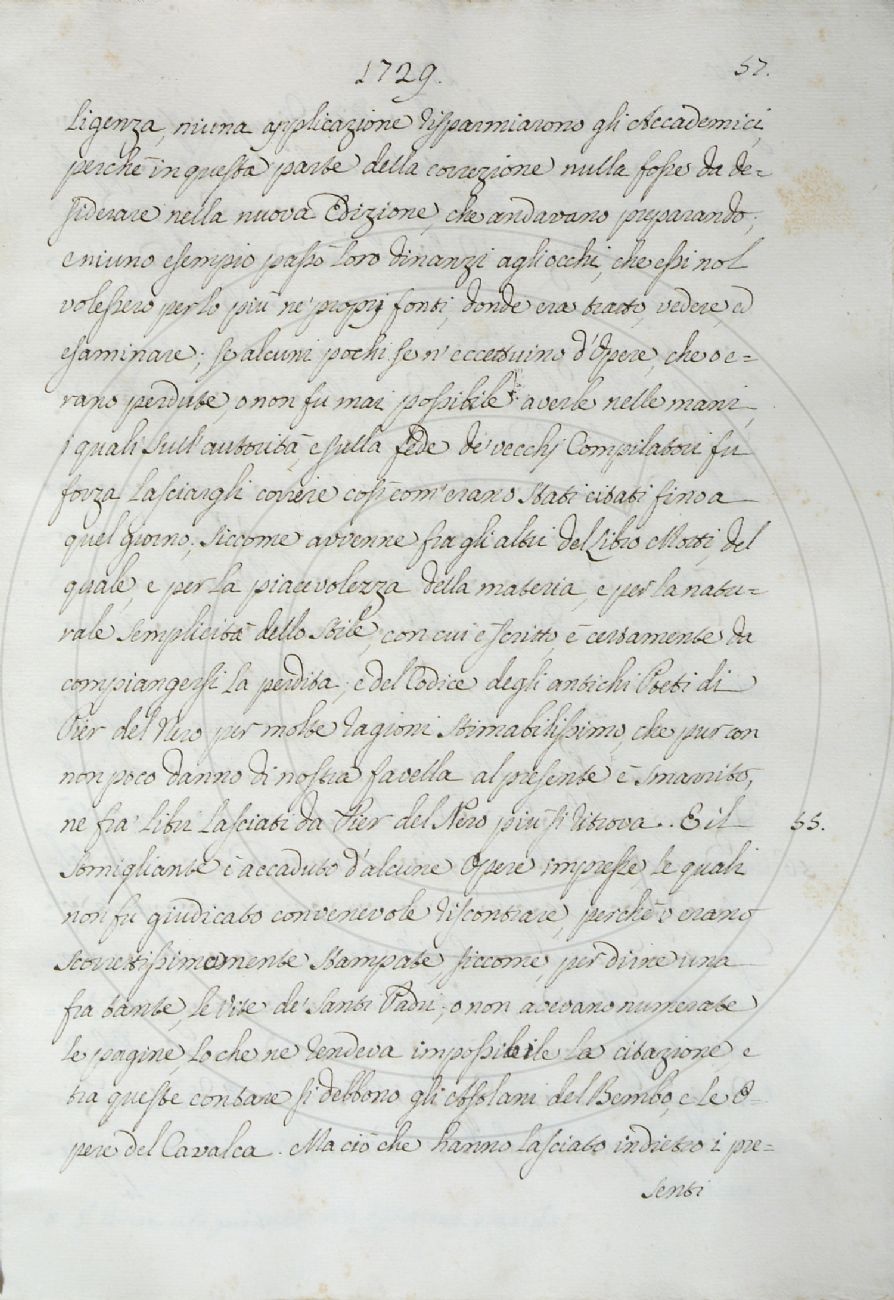 1729. 57.
ligenza, niuna applicazione risparmiarono gli Accademici,
perchè in questa parte della correzione nulla fosse da de=
siderare nella nuova Edizione, che andavano preparando;
e niuno esempio passò loro dinanzi agli occhi, che essi nol
volessero per lo più ne' proprj fonti, donde era tratto, vedere, ed
esaminare; se alcuni pochi se n'eccettuino d'Opere, che o e=
rano perdute, o non fu mai possibile averle nelle mani,
i quali sull'autorità, e sulla fede de' vecchj Compilatori fu
forza lasciargli correre così com'erano stati citati fino a
quel giorno; siccome avvenne fra gli altri del Libro Motti, del
quale, e per la piacevolezza della materia, e per la natu=
rale semplicità dello stile, con cui è scritto, è certamente da
compiangersi la perdita; e del Codice degli antichi Poeti di
Pier del Nero per molte ragioni stimabilissimo, che pur con
non poco danno di nostra favella al presente è smarrito,
ne fra' libri lasciati da Pier del Nero più si ritrova. E il 55.
somigliante è accaduto d'alcune Opere impresse, le quali
non fu giudicato convenevole riscontrare, perchè o erano
scorrettissimamente stampate, siccome, per dirne una
fra tante, le Vite de' Santi Padri; o non avevano numerate
le pagine, lo che ne rendeva impossibile la citazione, e
tra queste contare si debbono gli Asolani del Bembo, e le O=
pere del Cavalca. Ma ciò che hanno lasciato indietro i pre=
senti